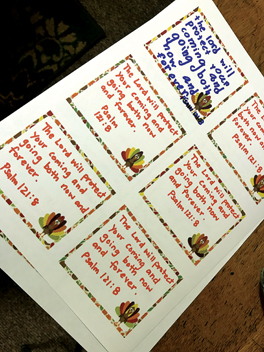 the Lord will
protect
coming
going
now and
The Lord will protect
your coming and
going both now
and forever.
Psalm 121:8
The Lord will
your coming
going both
and forever.
Psalm 121:8
The Lord will protect
your coming and
going both now and
forever.
Psalm 121:8
The Lord will protect
your coming and
going both now
and forever.
Psalm 121:8
The Lord will protect
your coming and
going both now
and forever.
Psalm 121:8